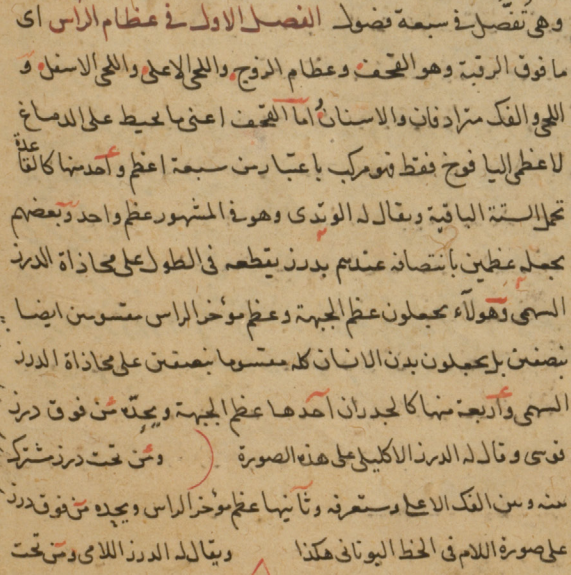 وهى تفصّل فى سبعة فصول الفصل الاول فى عظام الراس اى
مافوق الرقبة وهو القحف وعظام الزوج واللحى الاعلى واللحى الاسفل و
اللحى والفك مترادفان والاسنان واما القحف اعنى ما يحيط على الدماغ
لا عظمى اليافوخ فقط فهو مركب باعتبار من سبعة اعظم واحد منها كالقاعدة
تحمل الستة الباقية ويقال له الوتدى وهو فى المشهور عظم واحد وبعضهم
يجعله عظمين بانتصافه عندهم بدرز يقطعه فى الطول على محاذاة الدرز
السهمى وهولاء يجعلون عظم الجبهة وعظم مؤخر الراس مقسومين ايضا
بنصفين بل يجعلون بدن الانسان كله مقسوما بنصفين على محاذاة الدرز
السهمى واربعة منها كالجدران احدها عظم الجبهة ويحدّه من فوق درز
قوسى وقال له الدرز الاكليلى على هذه الصورة ومن تحت درز مشترك
بينه وبين الفك الاعلى وستعرفه وثانيها عظم مؤخر الراس ويحده من فوق درز
على صورة اللام فى الخط اليونانى هكذا ويقال له الدرز اللامى ومن تحت